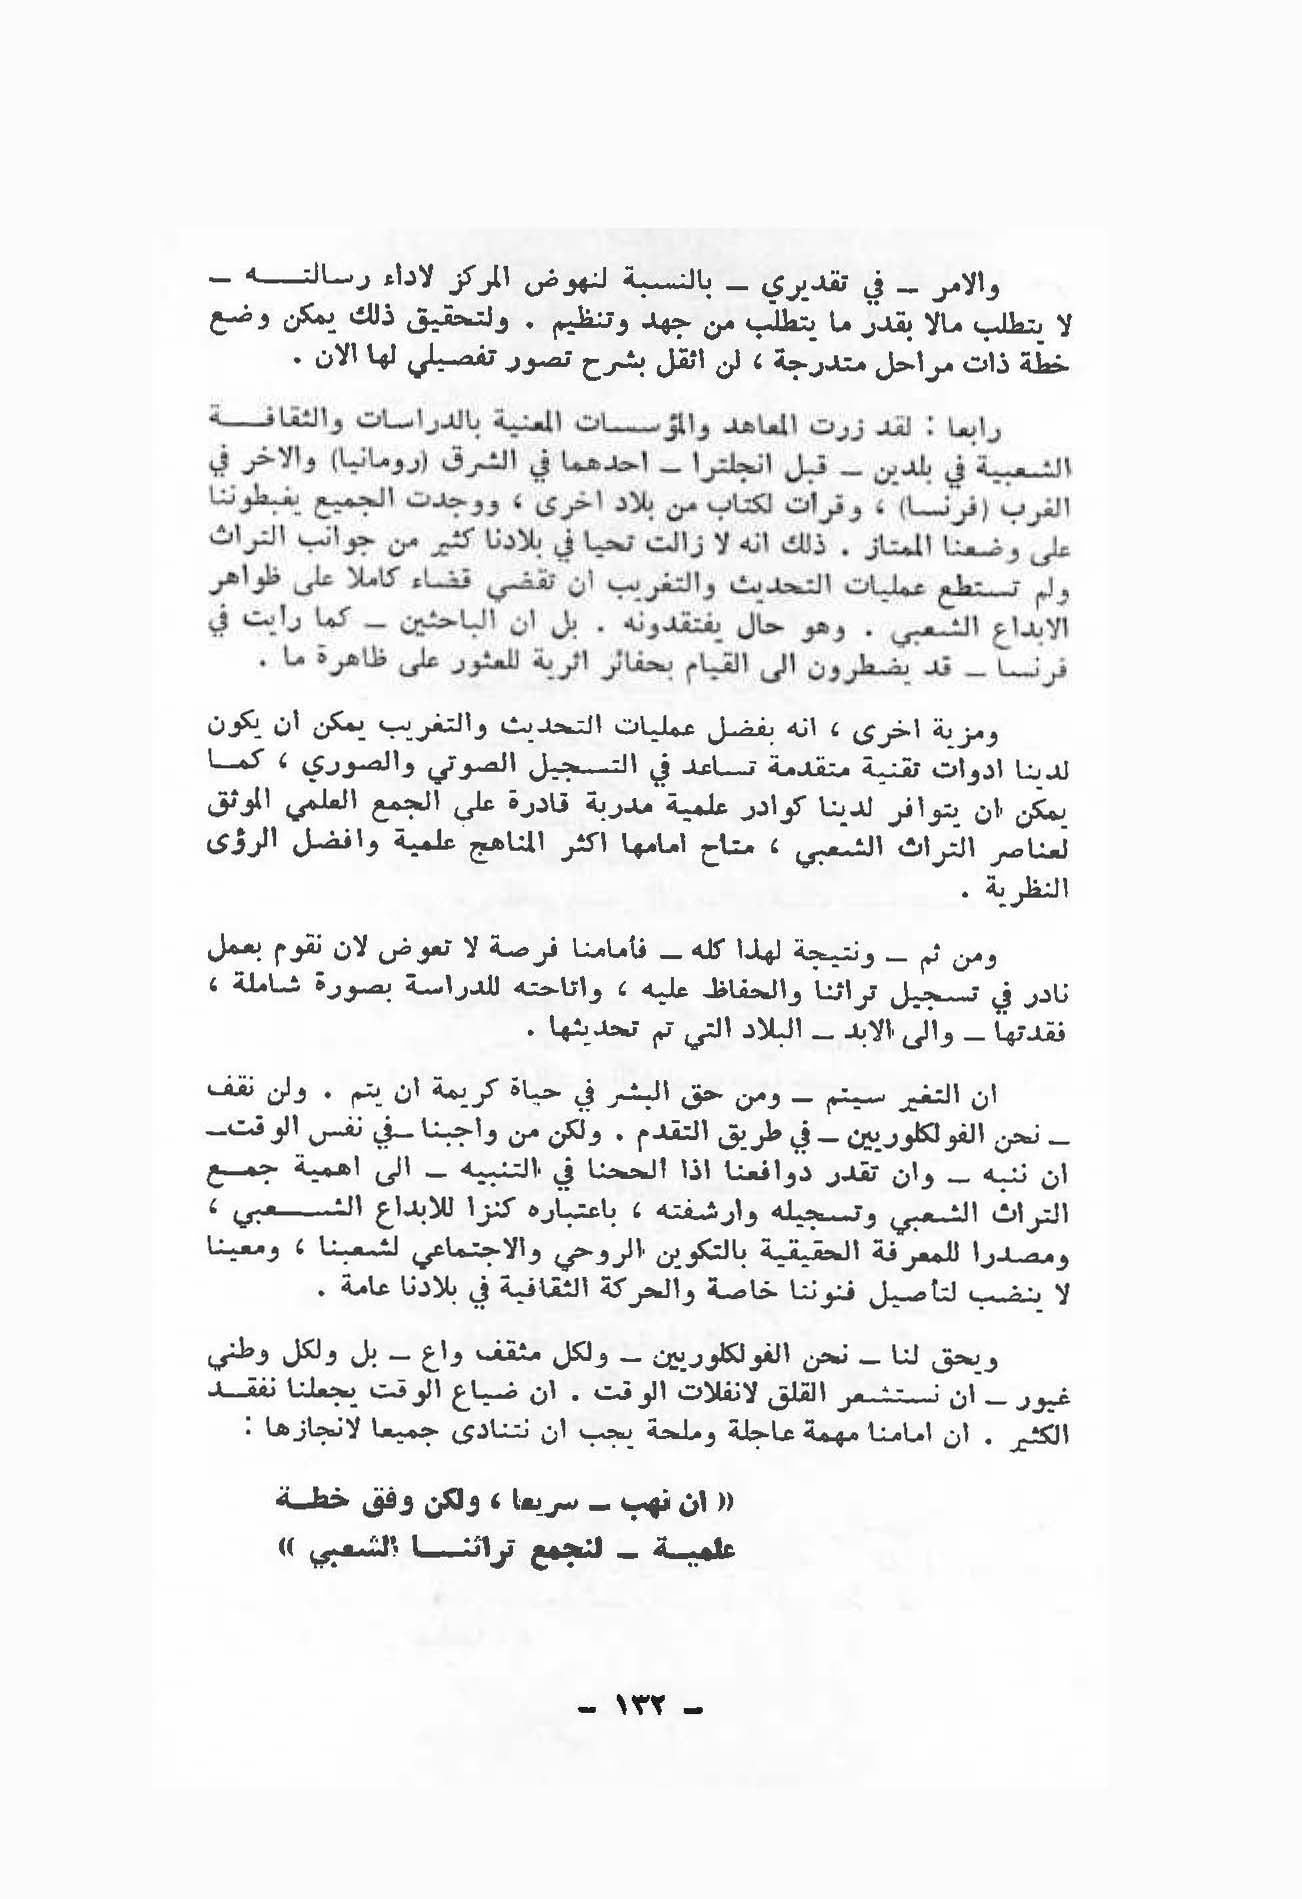 والامر ــ في تقديري ــ بالنسبة لنهوض المركز لاداء رسالتــــه ــ
لا يتطلب مالا بقدر ما يتطلب من جهد وتنظيم . ولتحقيق ذلك يمكن وضع
خطة ذات مراحل متدرجة ، لن اثقل بشرح تصور تفصيلي لها الان .
رابعا : لقد زرت المعاهد والمؤسسات المعنية بالدراسات والثقافــــة
الشعبية في بلدين ــ قبل انجلترا ــ احدهما في الشرق (رومانيا) والاخر في
الغرب (فرنسا) ، وقرات لكتاب من بلاد اخرى ، ووجدت الجميع يغبطوننا
على وضعنا الممتاز . ذلك انه لا زالت تحيا في بلادنا كثير من جوانب التراث
ولم تستطع عمليات التحديث والتغريب ان تقضي قضاء كاملا على ظواهر
الابداع الشعبي . وهو حال يفتقدونه . بل ان الباحثين ــ كما رايت في
فرنسا ــ قد يضطرون الى القيام بحفائر اثرية للعثور على ظاهرة ما .
ومزية اخرى ، انه بفضل عمليات التحديث والتغريب يمكن ان يكون
لدينا ادوات تقنية متقدمة تساعد في التسجيل الصوتي والصوري ، كمــا
يمكن ان يتوافر لدينا كوادر علمية مدربة قادرة على الجمع العلمي الموثق
لعناصر التراث الشعبي ، متاح امامها اكثر المناهج علمية وافضل الرؤى
النظرية .
ومن ثم ــ ونتيجة لهذا كله ــ فأمامنا فرصة لا تعوض لان نقوم بعمل
نادر في تسجيل تراثنا والحفاظ عليه ، واتاحته للدراسة بصورة شاملة ،
فقدتها ــ والى الابد ــ البلاد التي تم تحديثها .
ان التغير سيتم ــ ومن حق البشر في حياة كريمة ان يتم . ولن نقف
ــ نحن الفولكلوريين ــ في طريق التقدم . ولكن من واجبنا ــ في نفس الوقت ــ
ان ننبه ــ وان تقدر دوافعنا اذا ألححنا في التنبيه ــ الى اهمية جمــع
التراث الشعبي وتسجيله وارشفته ، باعتباره كنزا للابداع الشــــعبي ،
ومصدرا للمعرفة الحقيقية بالتكوين الروحي والاجتماعي لشعبنا ، ومعينا
لا ينضب لتأصيل فنوننا خاصة والحركة الثقافية في بلادنا عامة .
ويحق لنا ــ نحن الفولكلوريين ــ ولكل مثقف واع ــ بل ولكل وطني
غيور ــ ان نستشعر القلق لانفلات الوقت . ان ضياع الوقت يجعلنا نفقــد
الكثير . ان امامنا مهمة عاجلة وملحة يجب ان نتنادى جميعا لانجازها :
(( ان نهب ــ سريعا ، ولكن وفق خطــة
علميــة ــ لنجمع تراثنــــا الشعبي ))
ــ ١٣٢ ــ